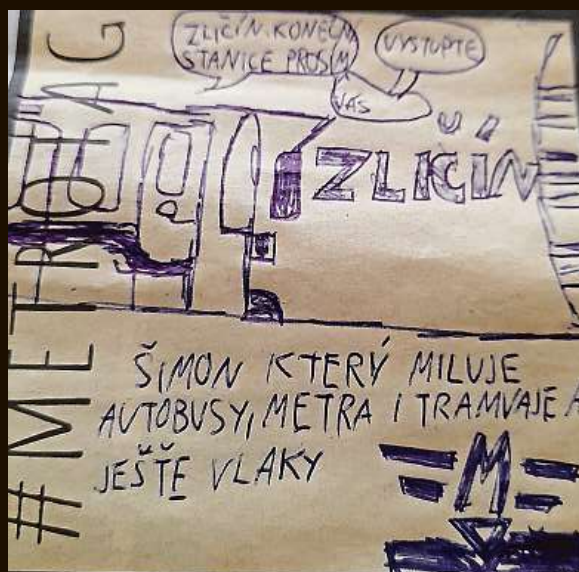 ZLIČÍN. KONEČN
STANICE PROSÍM
VÁS
VYSTUPTE
ZLIČÍN
ŠIMON KTERÝ MILUJE
AUTOBUSY, METRA I TRAMVAJE A
JEŠTĚ VLAKY
M
#METROTAG